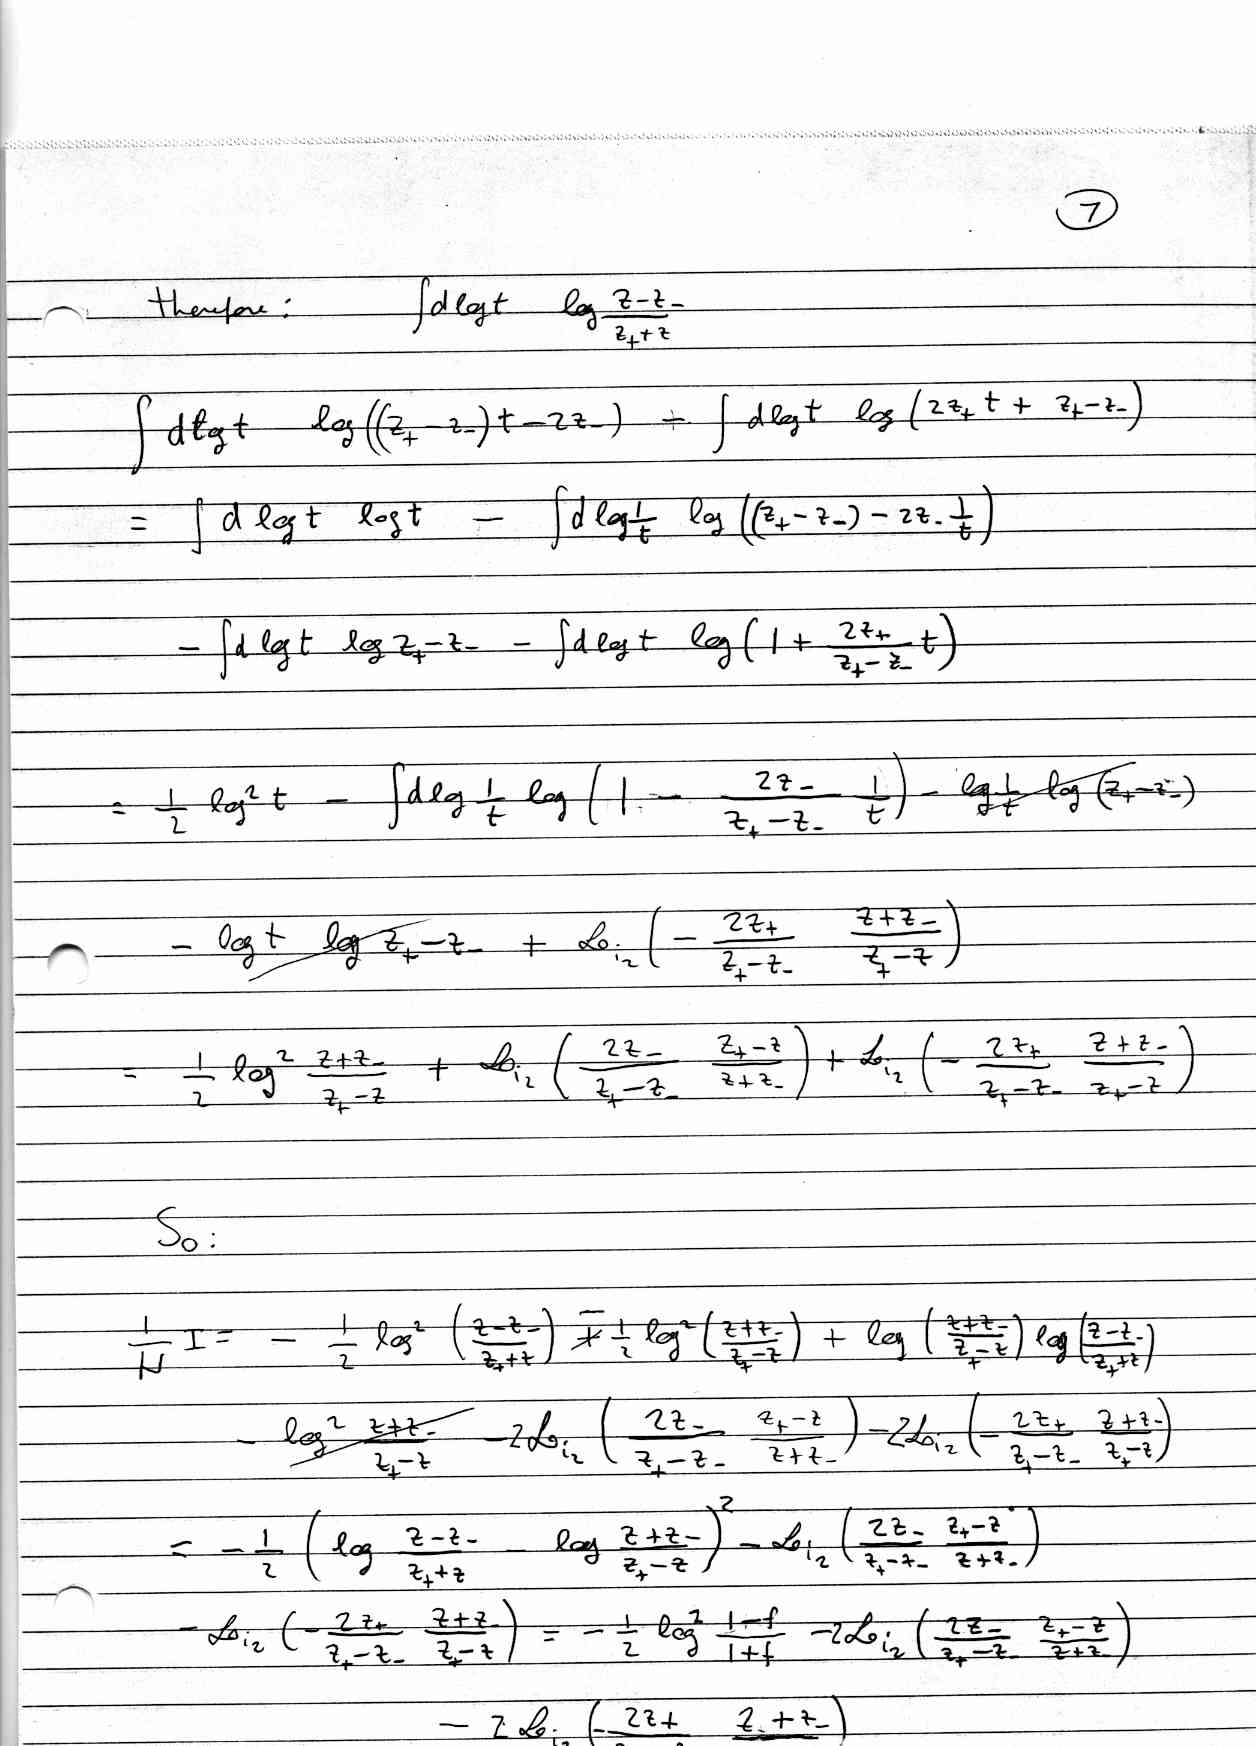 7
therefore: ∫ d log t log (z-z₋)/(z₊+z)
∫ d log t log((z₊-z₋)t-2z₋) ÷ ∫ d log t log(2z₊t + z₊-z₋)
= ∫ d log t log t - ∫ d log 1/t log((z₊-z₋)-2z₋ 1/t)
- ∫ d log t log z₊-z₋ - ∫ d log t log(1 + (2z₊)/(z₊-z₋) t)
= 1/2 log² t - ∫ d log 1/t log(1 - (2z₋)/(z₊-z₋) 1/t) - log 1/t log(z₊-z₋)
- log t log z₊-z₋ + Li₂(- (2z₊)/(z₊-z₋) (z+z₋)/(z₊-z))
= 1/2 log² (z+z₋)/(z₊-z) + Li₂((2z₋)/(z₊-z₋) (z₊-z)/(z+z₋)) + Li₂(- (2z₊)/(z₊-z₋) (z+z₋)/(z₊-z))
So:
1/N I = - 1/2 log²((z-z₋)/(z₊+z)) - 1/2 log²((z+z₋)/(z₊-z)) + log((z+z₋)/(z₊-z)) log((z-z₋)/(z₊+z))
- log² (z+z₋)/(z₊-z) -2Li₂((2z₋)/(z₊-z₋) (z₊-z)/(z+z₋)) -2Li₂(- (2z₊)/(z₊-z₋) (z+z₋)/(z₊-z))
= - 1/2 (log (z-z₋)/(z₊+z) - log (z+z₋)/(z₊-z))² - Li₂((2z₋)/(z₊-z₋) (z₊-z)/(z+z₋))
- Li₂(- (2z₊)/(z₊-z₋) (z+z₋)/(z₊-z)) = - 1/2 log² (1-f)/(1+f) -2Li₂((2z₋)/(z₊-z₋) (z₊-z)/(z+z₋))
- 2Li₂(- 2z₊ z+z₋)